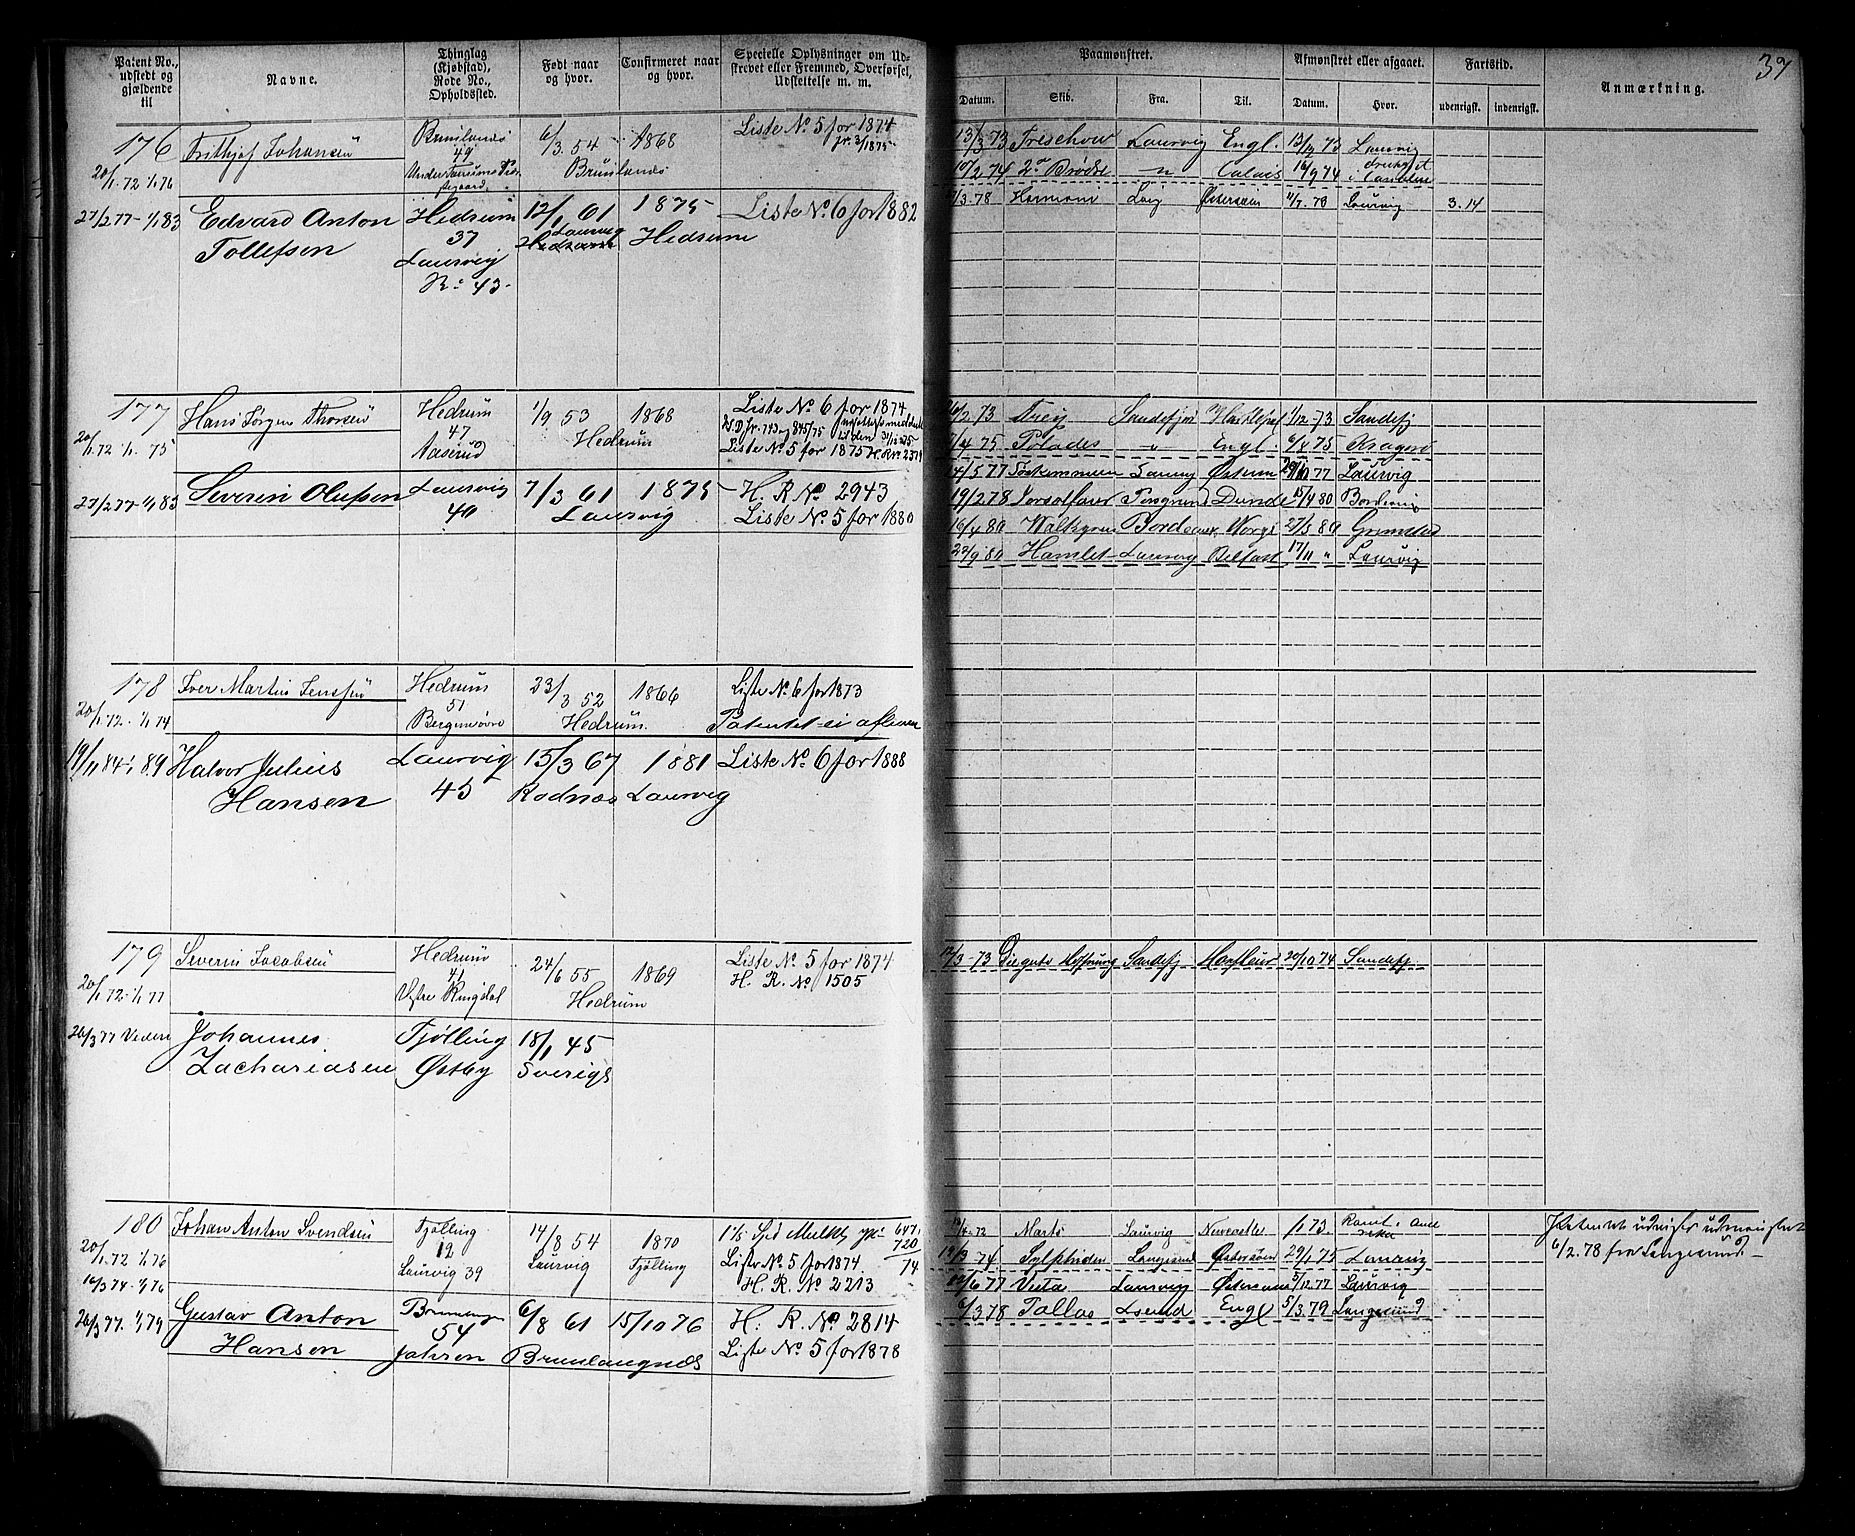 Patent No., udstedt og gjældende til
Navne.
Thinglag (Kjøbstad), Rode No., Opholdssted.
Født naar og hvor.
Confirmeret naar og hvor.
Specielle Oplysninger om Udskrevet eller Fremmed, Overførsel, Udslettelse m. m.
Paamønstret.
Datum.
Skib.
Fra.
Til.
Afmønstret eller afgaaet.
Datum.
Hvor.
Fartstid.
udenrigsk.
indenrigsk.
Anmærkning.
37
176
20/1.72 1/1.76
Frithjof Johansen
Brunlanes
49
6/3.54
Brunlanes
1868
Liste No 5 for 1874
13/3 73 Treschow Laurvig Engl. 13/12 73 Laurvig
10/2 74 Calais 16/9 74
27/2 77 - 1/1 83
Edvard Anton
Tollefsen
Hedrum
37
Laurvig
R: 43
12/1 61
Laurvig
1875
Hedrum
Liste No. 6 for 1882
/3.78 Hermoni Østersøen 4/7.78 Laurvig 3.14
177
20/1.72 1/1.75
Hans Jørgen Thorsen
Hedrum
47
Aaserud
1/9 53
Hedrum
1868
Liste No 6 for 1874
Liste No 5 for 1875 H. R. No 2379
/2.73 Sandefj 1/12.73 Sandefj
/4 75 Engl. 6/8 75 Kragerø
27/2 77 - 1/1 83
Severin Olufsen
Laurvig
40
7/3 61
Laurvig
1875
H. R. No 2943
Liste No. 5 for 1880
14/5 77 29/10 77 Laurvig
19/2 78 Jorsalfarer 15/4 80
16/4 80 Bordeaux Norge 27/5 80 Grimstad
22/9 80 Hamlet Laurvig Belfast 17/11 " Laurvig
178
20/1.72 - 1/1 74
Iver Martin Jenssen
Hedrum
51
23/3 52
Hedrum
1866
Liste No 6 for 1873
Patentet ei afleveret
19/11 84 - 89
Halvor Julius
Hansen
Laurvig
45
15/3 67
Rødnæs
1881
Laurvig
Liste No. 6 for 1888
179
20/1.72 - 1/1 77
Severin Jacobsen
Hedrum
41
Vestre Ringdal
24/6 55
Hedrum
1869
Liste No. 5 for 1874
H. R. No 1505
12/3-73 Die gute Hoffnung Sandefj 20/10 74 Sandefj
26/3 77
Johannes
Zachariasen
Tjølling
Østby
18/1 45
Sverige
180
20/1.72 1/1 76
16/3 74 - 1/1 76
Johan Anton Svendsen
Tjølling
12
Laurvig 39
14/8 54
Laurvig
1870
Tjølling
Liste No 5 for 1874.
H. R. No 2213
/6.72 Laurvig Newcastle /1 73
/3.74 Sylphiden Langesund Østersøen 29/1 75 Laurvig
/6 77 Vesta Laurvig Østersøen 5/12.77 Laurvig
6/3 78 Pallas Engl 5/3.79 Langesund
Patentet udvigts
6/2.78 fra Langesund
26/3 77. 1/1 79
Gustav Anton
Hansen
54
6/8 61
15/10 76
Brunlangnæs
H. R. No 2814
Liste No 5 for 1878